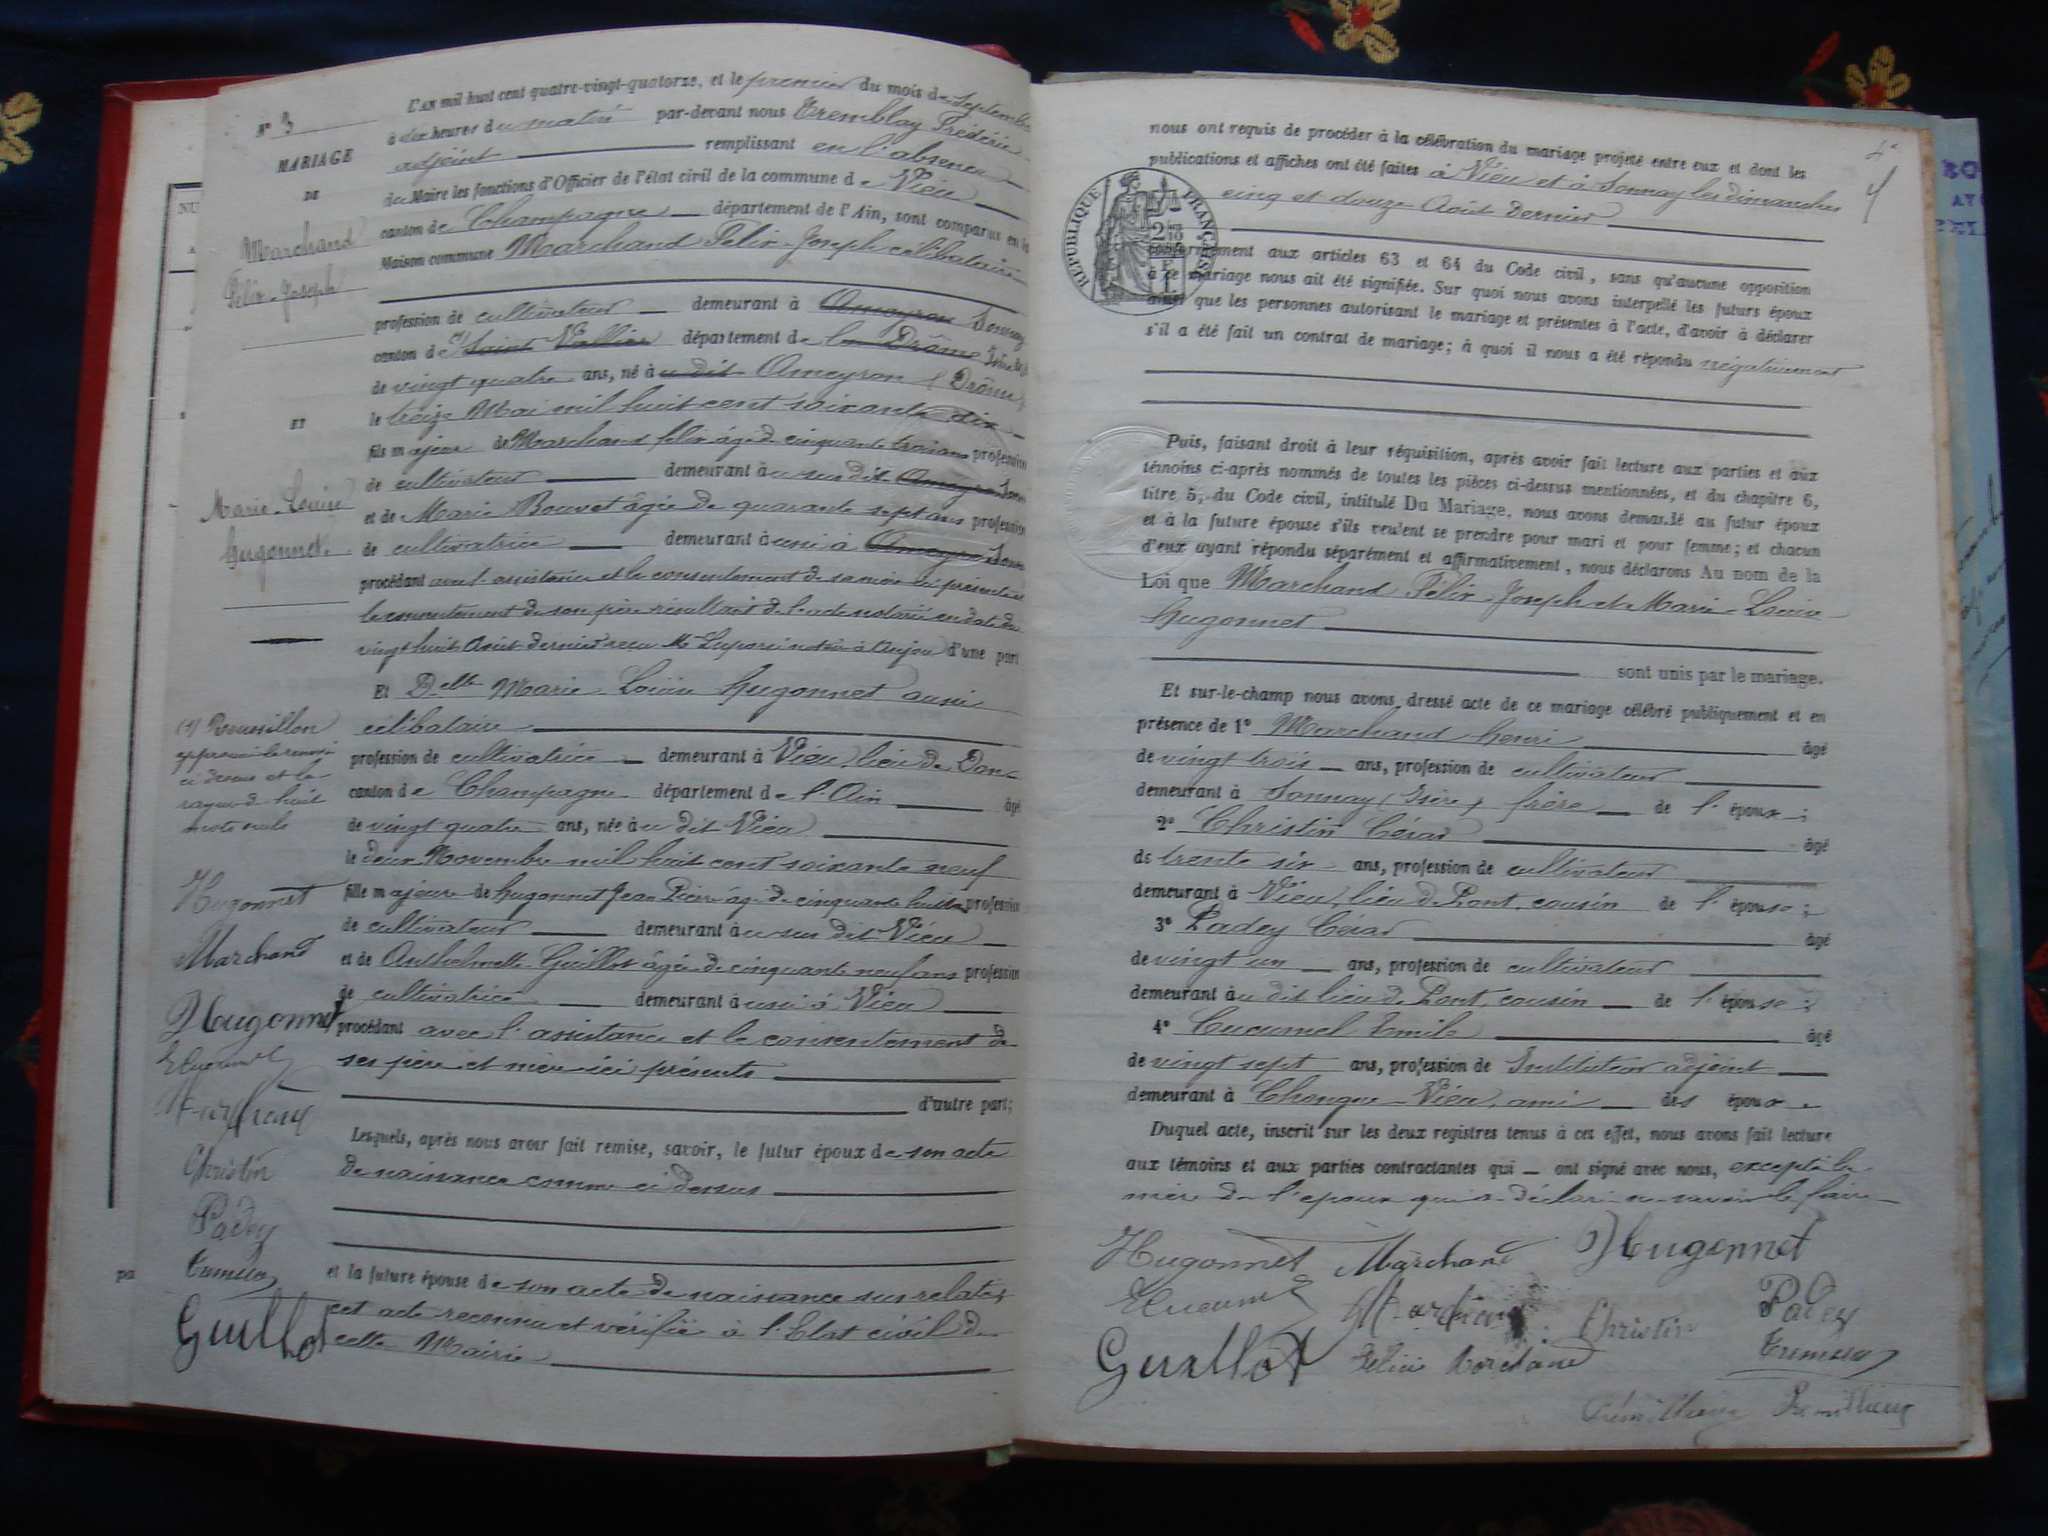 N° 3
MARIAGE
DE
Marchand
Félix-Joseph
ET
Marie-Louise
Hugonnet
(1) Roussillon
approuvé le renvoi
ci dessus et la
rayure de huit
mots nuls
Hugonnet
Marchand
Hugonnet
Christin
Padey
Guillot
L'an mil huit cent quatre-vingt-quatorze, et le premier du mois de Septembre
à dix heures du matin par-devant nous Tremblay Frédéric
adjoint remplissant en l'absence
du Maire les fonctions d'Officier de l'état civil de la commune de Vieu
canton de Champagne département de l'Ain, sont comparus en la
Maison commune Marchand Félix-Joseph célibataire
profession de cultivateur demeurant à Ameyron Sonnay
canton de Saint Vallier département de la Drôme Isère
de vingt quatre ans, né au dit Ameyron (Drôme)
le treize Mai mil huit cent soixante dix
fils majeur de Marchand Félix âgé de cinquante trois ans profession
de cultivateur demeurant au sus dit
et de Marie Bouvet âgée de quarante sept ans profession
de cultivatrice demeurant aussi à
procédant avec l'assistance et le consentement de sa mère ici présente et
le consentement de son père résultant de l'acte notarié en date du
vingt huit Août dernier reçu Me notaire à Anjou d'une part
Et Delle Marie-Louise Hugonnet aussi
célibataire
profession de cultivatrice demeurant à Vieu, lieu de
canton de Champagne département de l'Ain âgé
de vingt quatre ans, née au dit Vieu
le deux Novembre mil huit cent soixante neuf
fille majeure de Hugonnet Jean Pierre âgé de cinquante huit ans profession
de cultivateur demeurant au sus dit Vieu
et de Anthelmette Guillot âgée de cinquante neuf ans profession
de cultivatrice demeurant aussi à Vieu
procédant avec l'assistance et le consentement de
ses père et mère ici présents
d'autre part;
Lesquels, après nous avoir fait remise, savoir, le futur époux de son acte
de naissance comme ci dessus
et la future épouse de son acte de naissance sus relaté,
cet acte reconnu et vérifié à l'Etat civil de
cette Mairie
4
nous ont requis de procéder à la célébration du mariage projeté entre eux et dont les
publications et affiches ont été faites à Vieu et à Sonnay les dimanches
cinq et douze Août dernier
RÉPUBLIQUE FRANÇAISE
conformément aux articles 63 et 64 du Code civil, sans qu'aucune opposition
à ce mariage nous ait été signifiée. Sur quoi nous avons interpellé les futurs époux
ainsi que les personnes autorisant le mariage et présentes à l'acte, d'avoir à déclarer
s'il a été fait un contrat de mariage; à quoi il nous a été répondu négativement
Puis, faisant droit à leur réquisition, après avoir fait lecture aux parties et aux
témoins ci-après nommés de toutes les pièces ci-dessus mentionnées, et du chapitre 6,
titre 5, du Code civil, intitulé Du Mariage, nous avons demandé au futur époux
et à la future épouse s'ils veulent se prendre pour mari et pour femme; et chacun
d'eux ayant répondu séparément et affirmativement, nous déclarons Au nom de la
Loi que Marchand Félix-Joseph et Marie-Louise
Hugonnet
sont unis par le mariage.
Et sur-le-champ nous avons dressé acte de ce mariage célébré publiquement et en
présence de 1° Marchand Henri âgé
de vingt trois ans, profession de cultivateur
demeurant à Sonnay (Isère) frère de l'époux;
2° Christin César âgé
de trente six ans, profession de cultivateur
demeurant à Vieu, lieu de Pont, cousin de l'épouse;
3° Padey César âgé
de vingt un ans, profession de cultivateur
demeurant au dit lieu de Pont, cousin de l'épouse;
4° Cucumel Emile âgé
de vingt sept ans, profession de Instituteur adjoint
demeurant à Chongne-Vieu, ami des époux.
Duquel acte, inscrit sur les deux registres tenus à cet effet, nous avons fait lecture
aux témoins et aux parties contractantes qui ont signé avec nous, excepté la
mère de l'époux qui a déclaré ne savoir le faire
Hugonnet Marchand Hugonnet
Christin Padey
Guillot Marchand